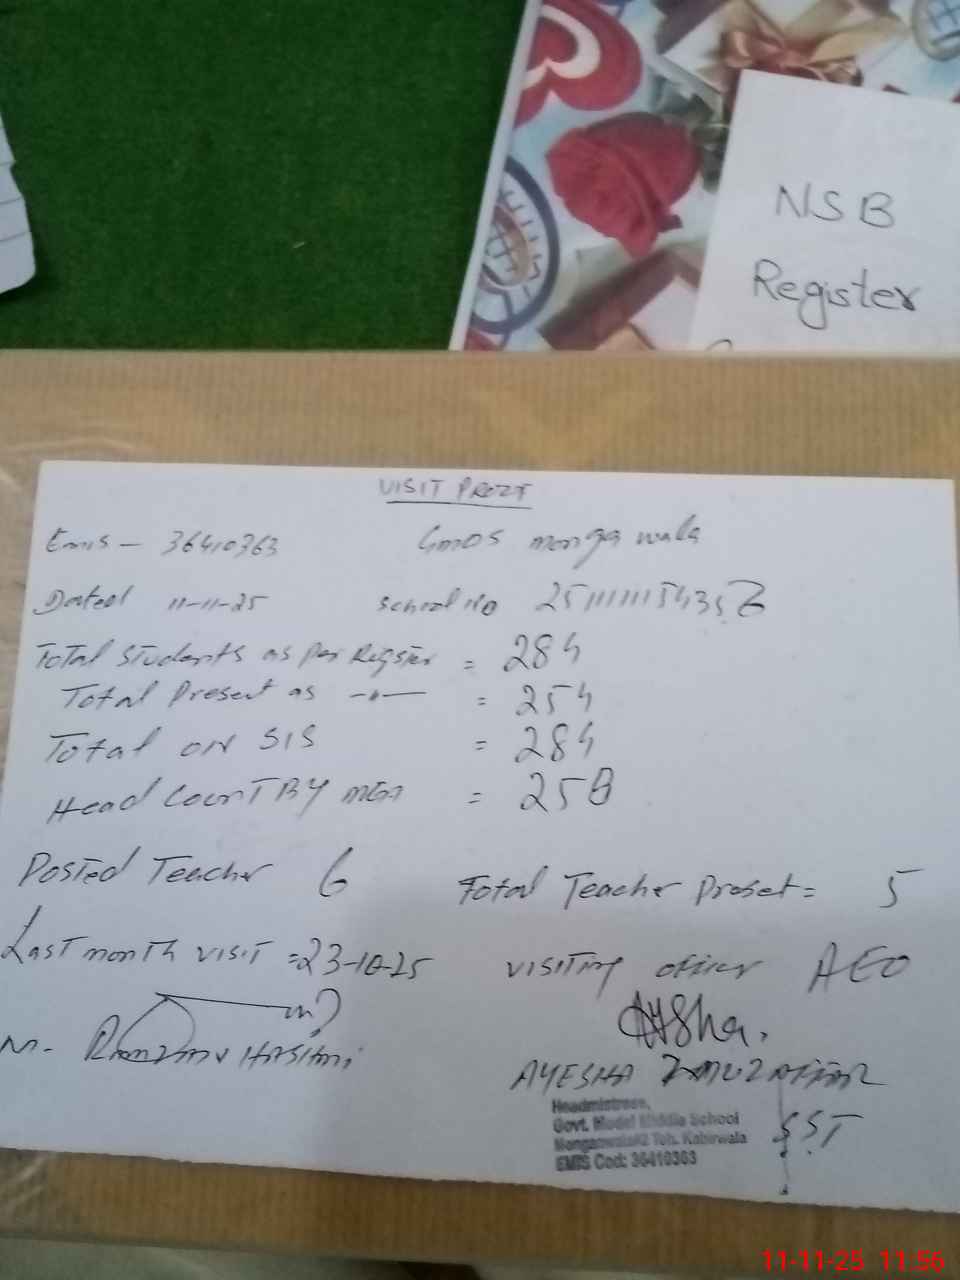 NSB
Register
VISIT PROZF
Emis - 36410363 GMOS monga wala
Dated 11-11-25 School No
Total Students as per Regster = 284
Total Present as -"- = 254
Total on SIS = 284
Head Count BY mea =
Posted Teacher 6 Total Teacher Preset = 5
Last month visit = 23-10-25 visiting officer AEO
Aysha.
M. HASHmi
AYESHA
SST
Headmistress,
Govt. Model Middle School
Mongawala#2 Teh. Kabirwala
EMIS Cod: 36410363
11-11-25 11:56